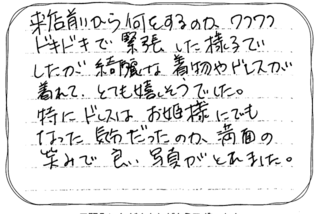 来店前から何をするのか、ワクワク
ドキドキで緊張した様子で
したが綺麗な着物やドレスが
着れて、とても嬉しそうでした。
特にドレスはお姫様にでも
なった気分だったのか、満面の
笑みで良い写真がとれました。